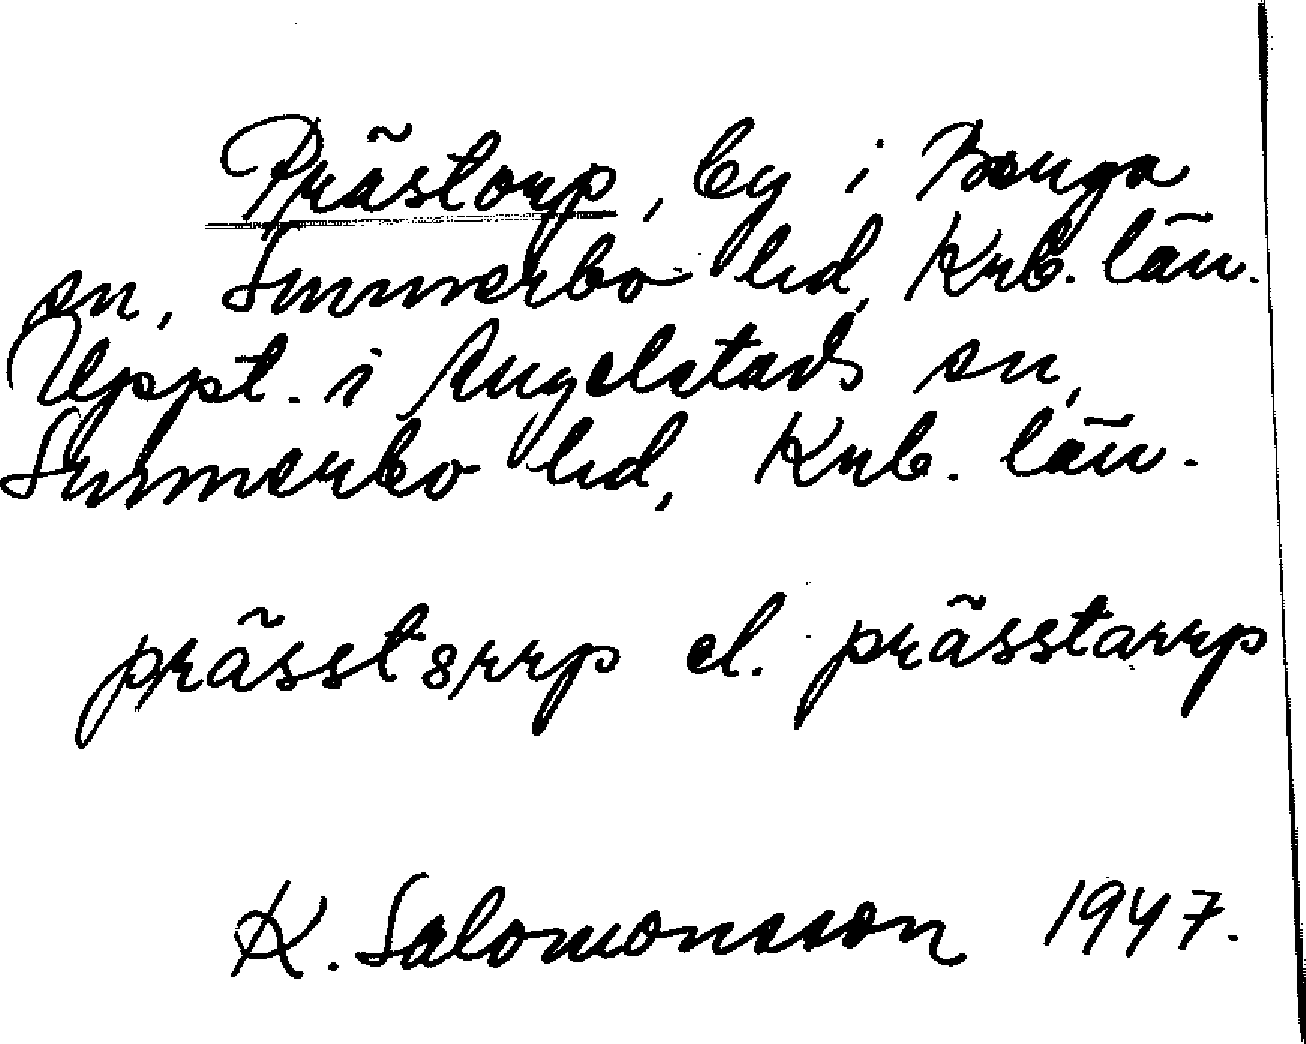 Prästorp, by i Berga
sn, Sunnerbo hd, Krb. län.
Uppt. i Angelstads sn,
Sunnerbo hd, Krb. län.
prässt8rrp el. prässtarrp
K. Salomonsson 1947.